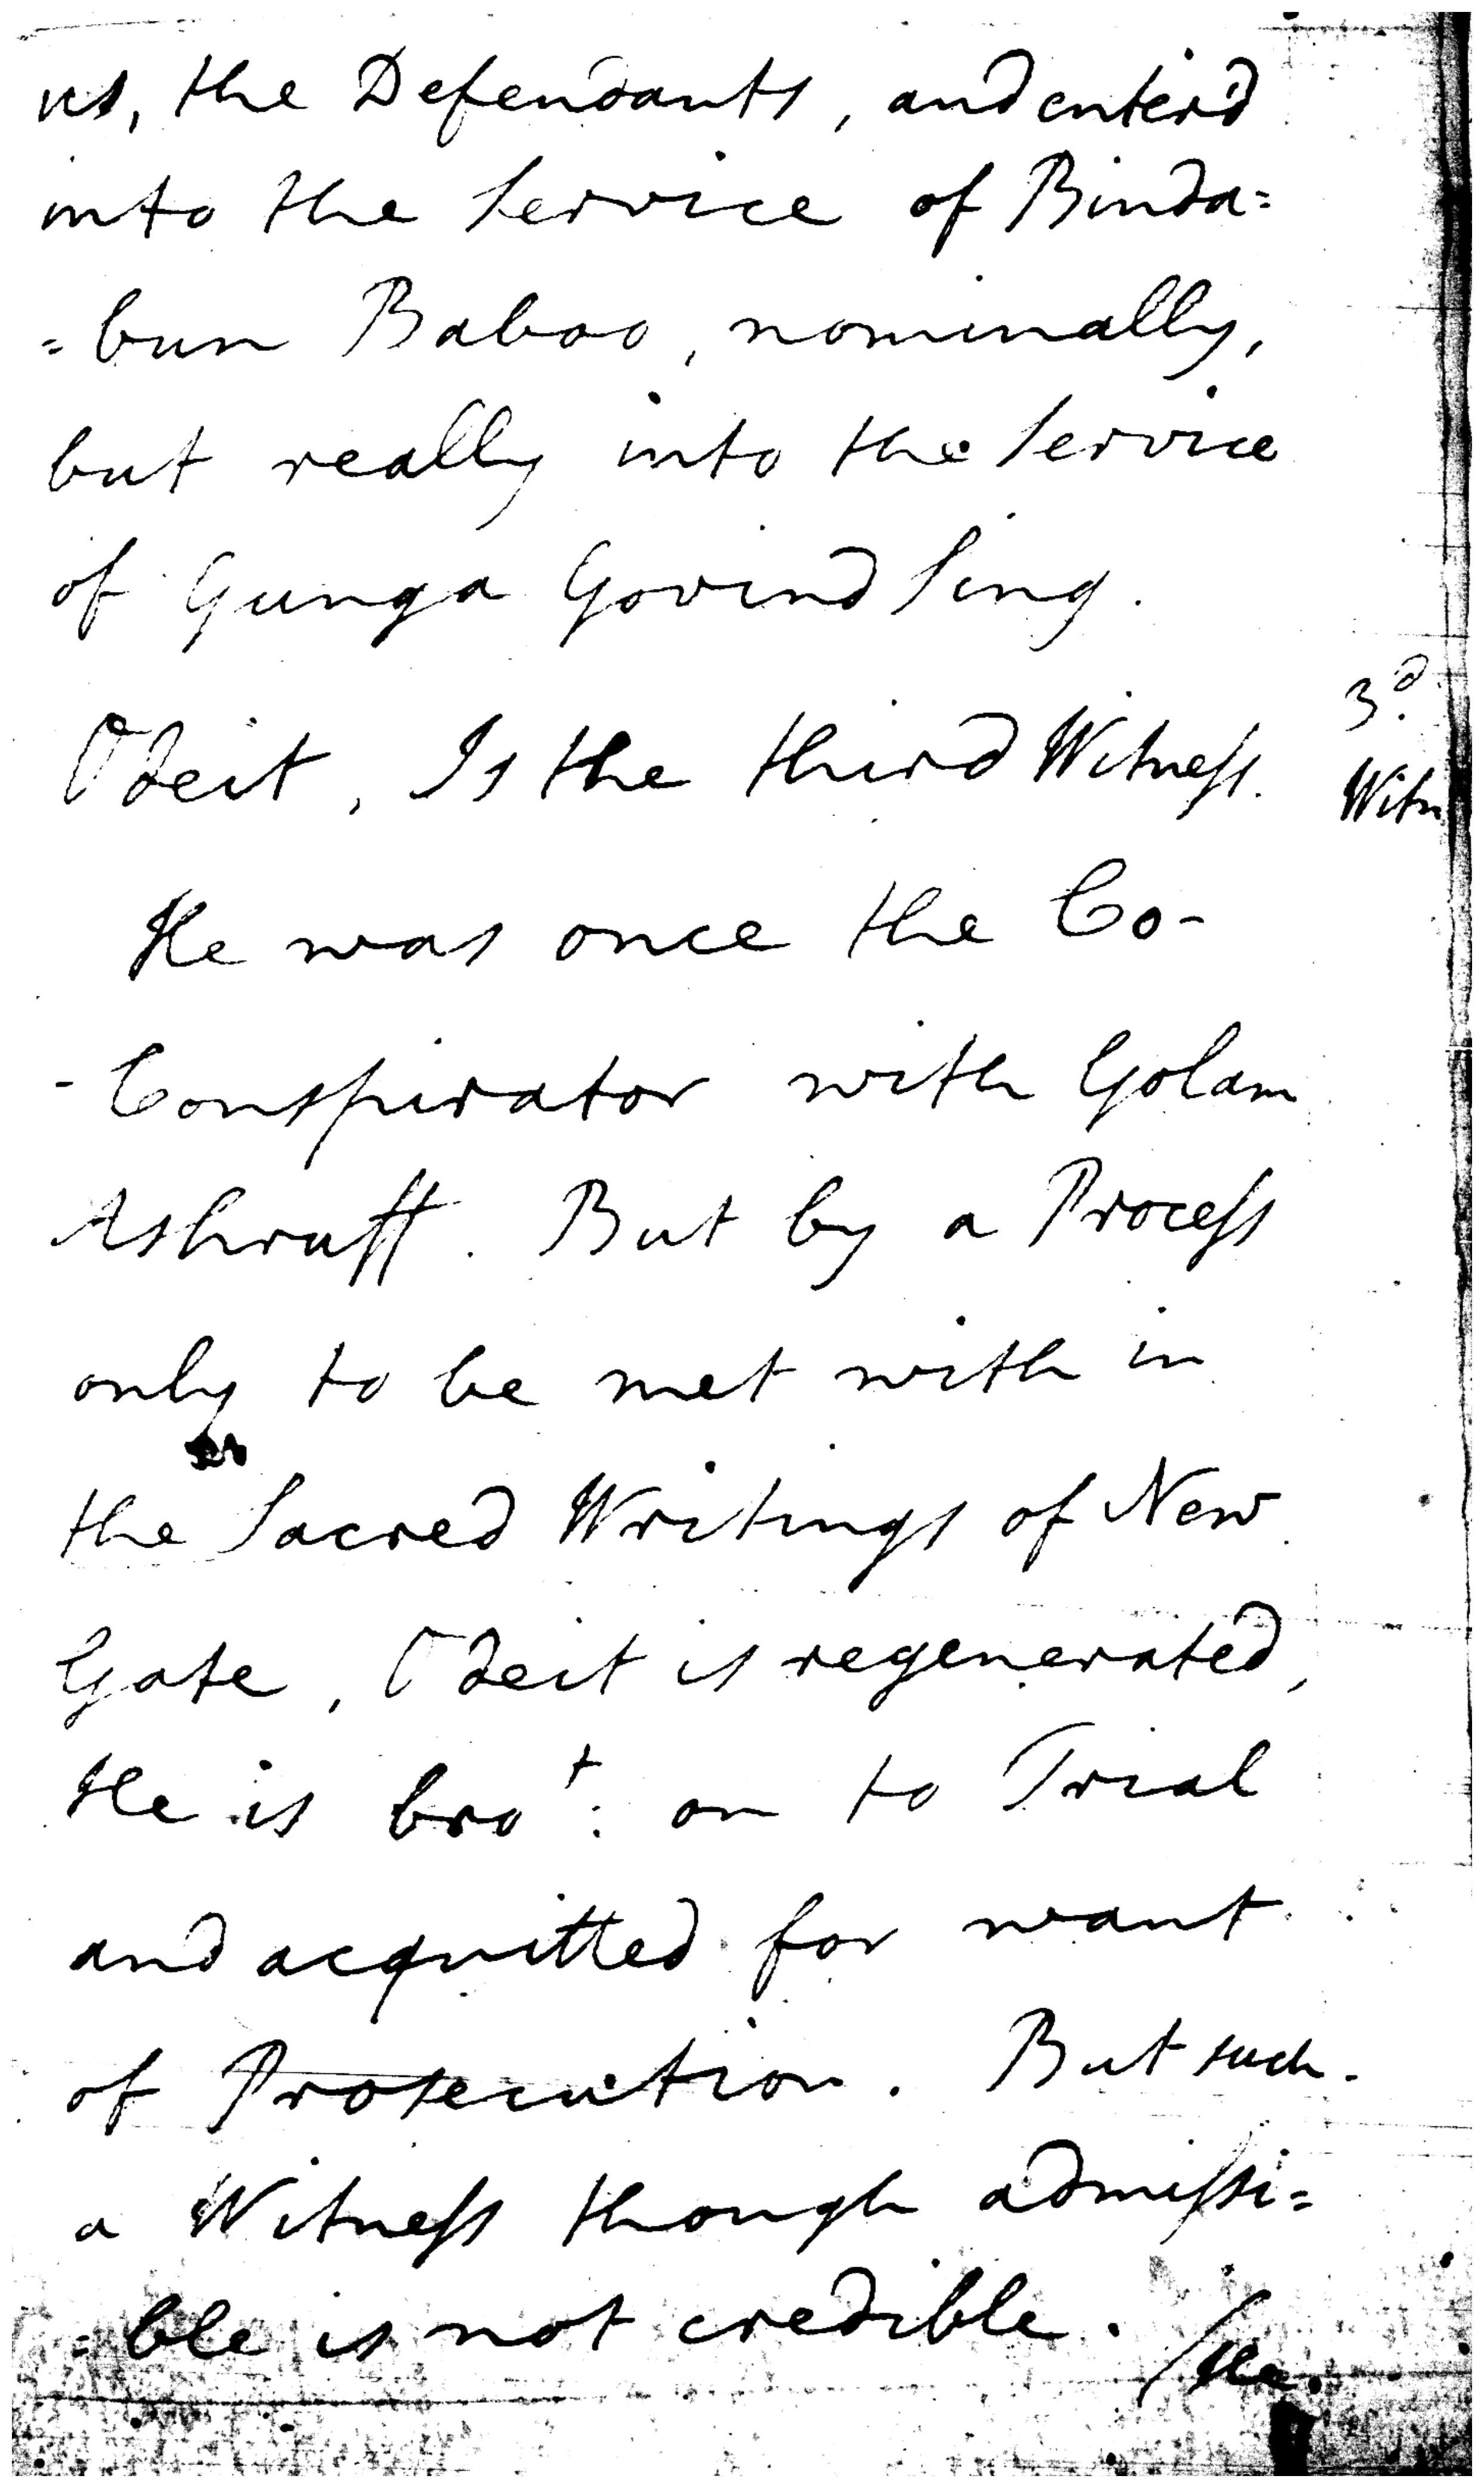 us, the Defendants, and enter'd
into the Service of Binda=
=bun Baboo, nominally,
but really into the Service
of Gunga Govind Sing.
3d.
Odeit, Is the third Witness.
Witn
He was once the Co-
-Conspirator with Golam
Ashruff. But by a Process
only to be met with in
the Sacred Writings of New
Gate, Odeit is regenerated,
He is brot: on to Trial
and acquitted for want
of Prosecution. But such
a Witness though admissi=
=ble is not credible.
/He.